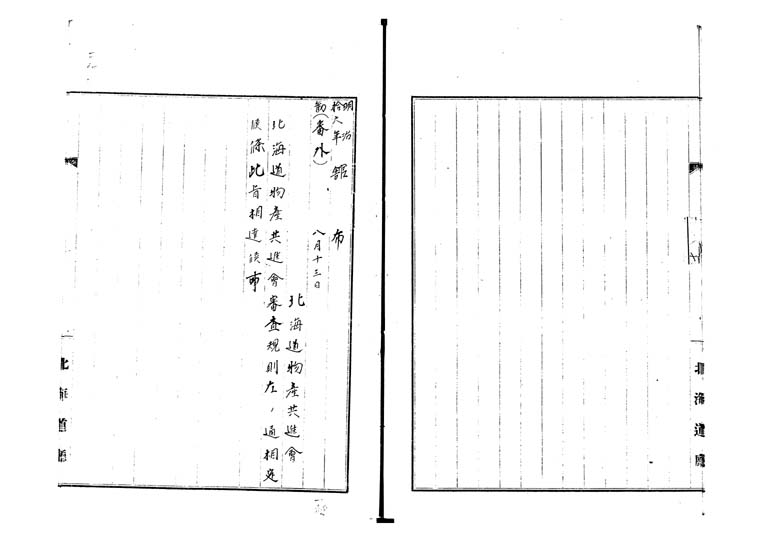 北海道廳
明治
拾六年 舘 布
勧(番外) 八月十三日
北海道物産共進會
北海道物産共進會審査規則左ノ通相定
候條此旨相達候事
北海道廳